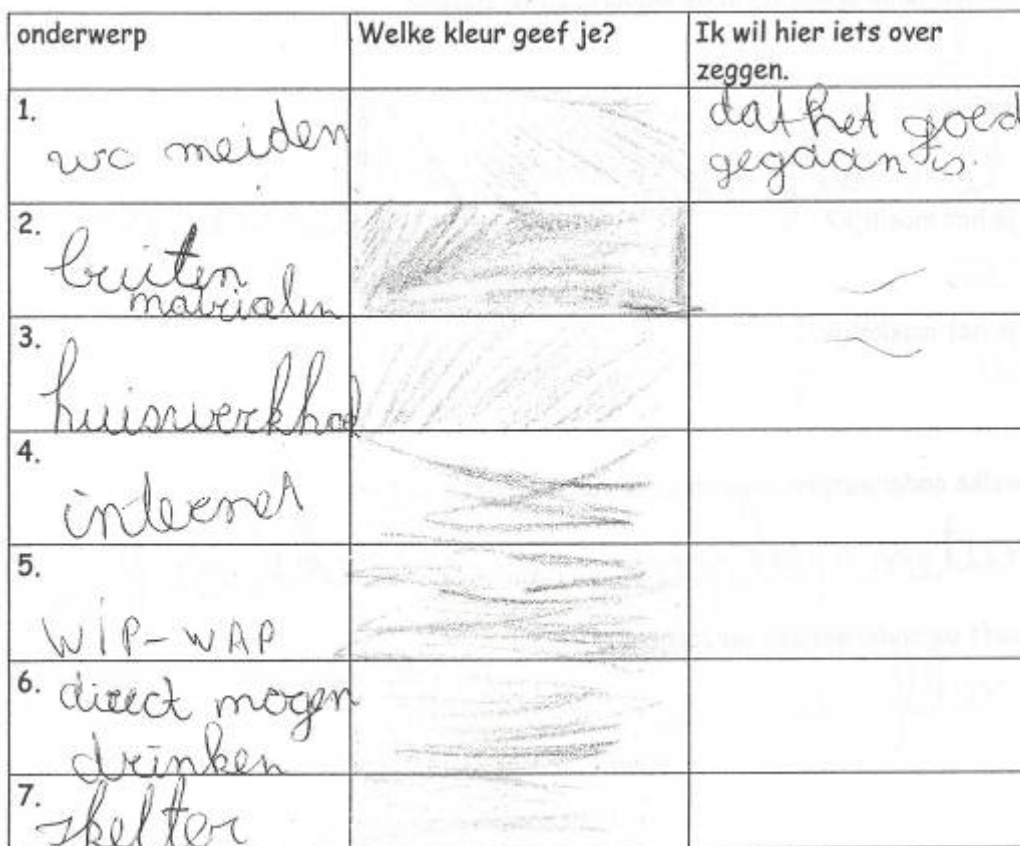 onderwerp
Welke kleur geef je?
Ik wil hier iets over
zeggen.
1.
wc meiden
dat het goed
gegaan is.
2.
buiten
matrialen
3.
huiswerkhok
4.
internet
5.
WIP-WAP
6. direct mogen
drinken
7.
skelter